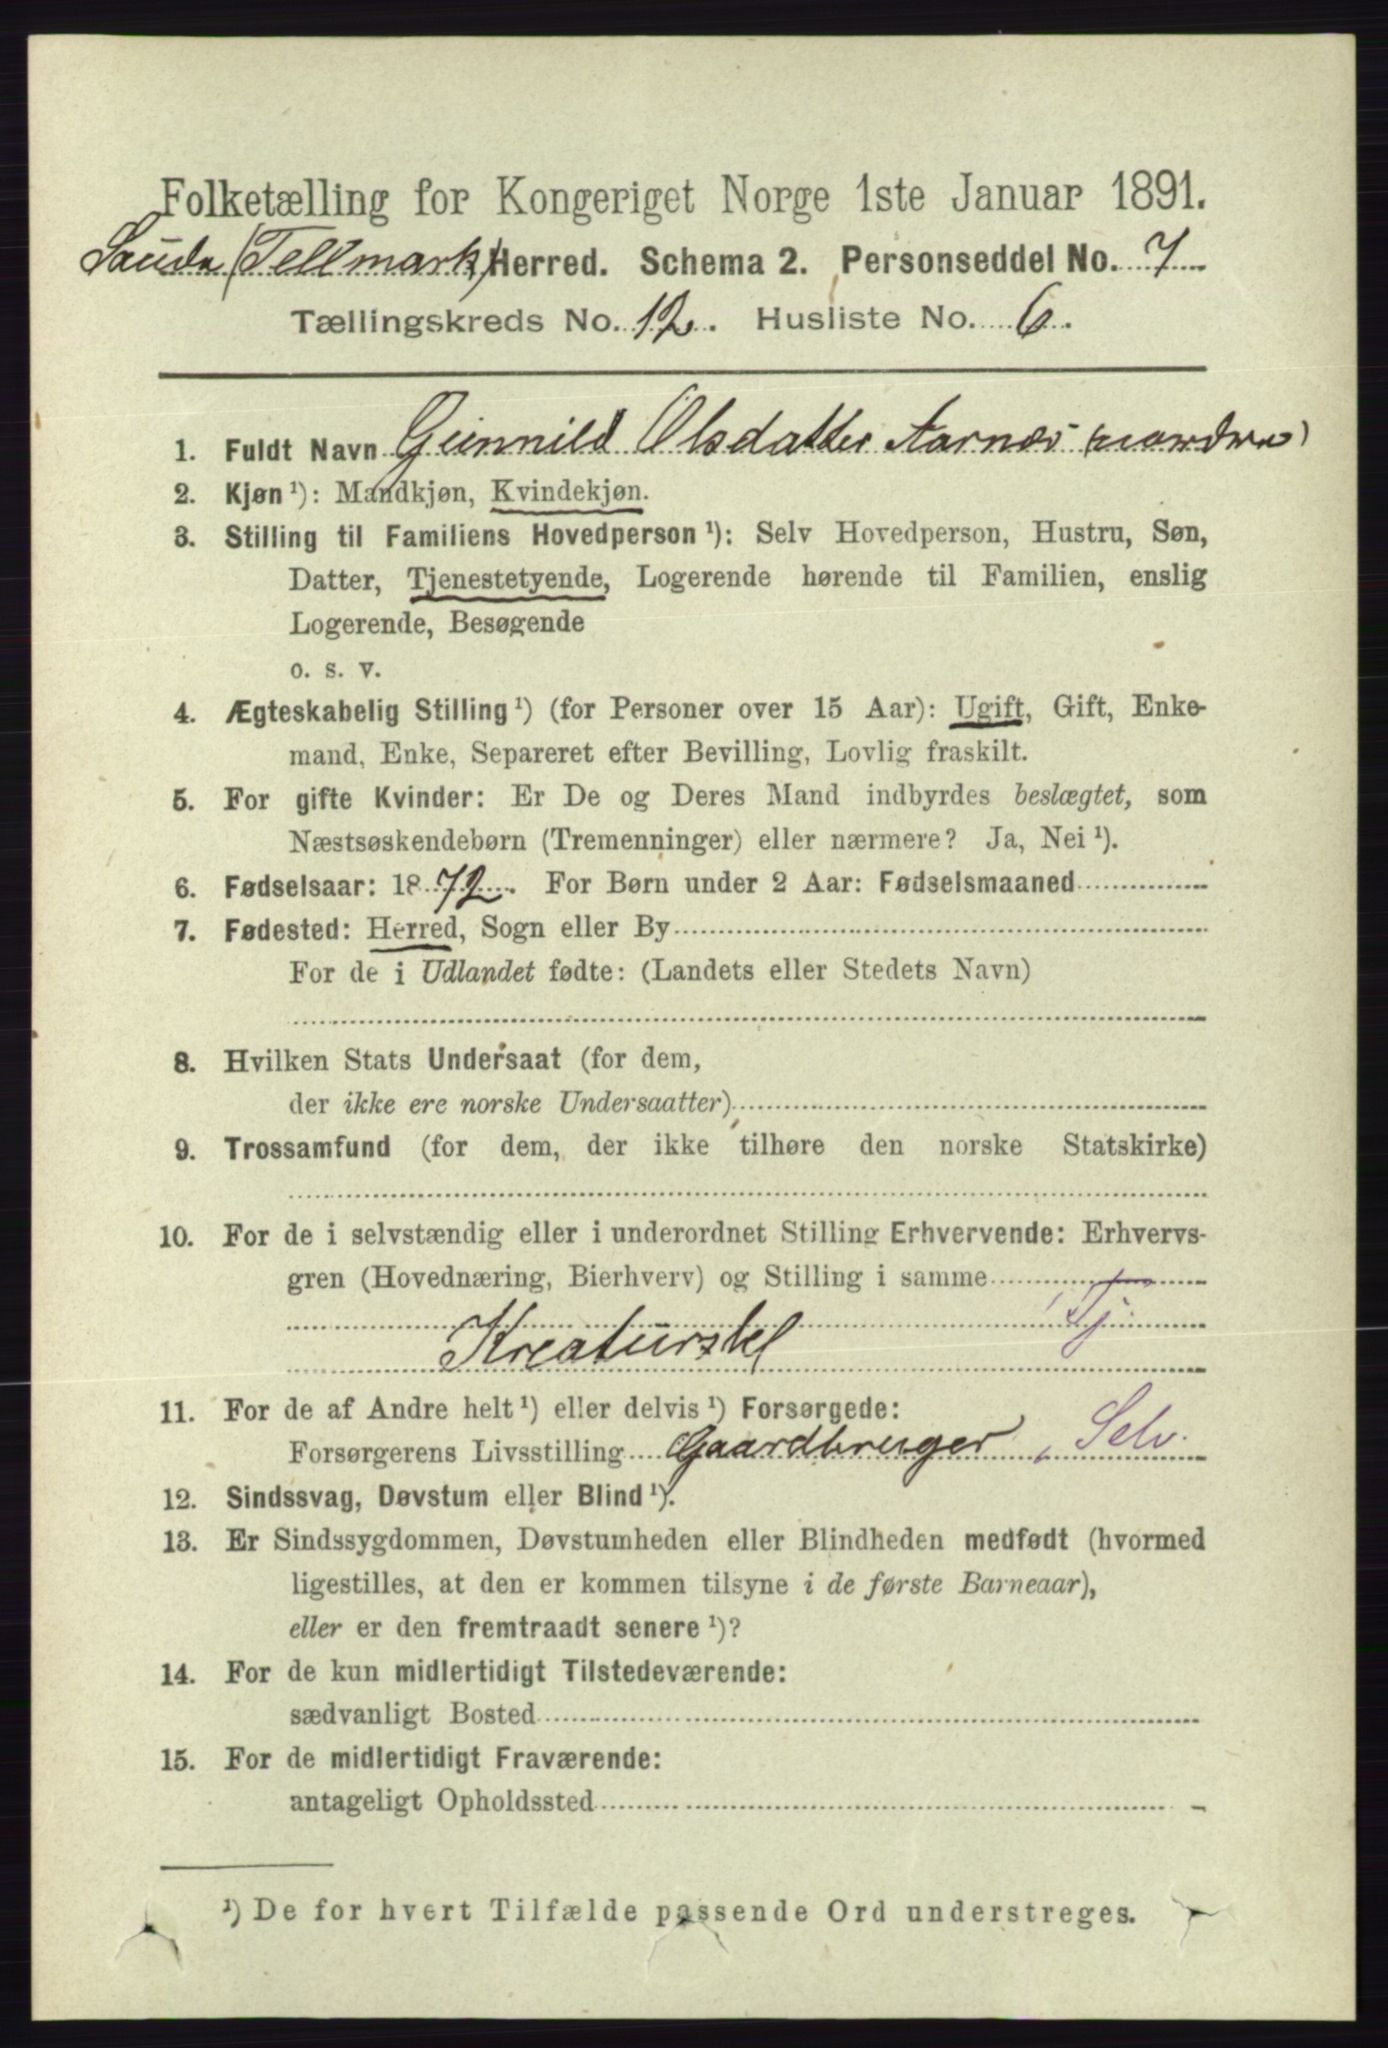 Folketælling for Kongeriget Norge 1ste Januar 1891.
Saude (Tellmark) Herred. Schema 2. Personseddel No. 7
Tællingskreds No. 12. Husliste No. 6.
1. Fuldt Navn Gunnild Olsdatter Aarnæs (nordre)
2. Kjøn ¹): Mandkjøn, Kvindekjøn.
3. Stilling til Familiens Hovedperson ¹): Selv Hovedperson, Hustru, Søn,
Datter, Tjenestetyende, Logerende hørende til Familien, enslig
Logerende, Besøgende
o. s. v.
4. Ægteskabelig Stilling ¹) (for Personer over 15 Aar): Ugift, Gift, Enke-
mand, Enke, Separeret efter Bevilling, Lovlig fraskilt.
5. For gifte Kvinder: Er De og Deres Mand indbyrdes beslægtet, som
Næstsøskendebørn (Tremenninger) eller nærmere? Ja, Nei ¹).
6. Fødselsaar: 1872. For Børn under 2 Aar: Fødselsmaaned
7. Fødested: Herred, Sogn eller By
For de i Udlandet fødte: (Landets eller Stedets Navn)
8. Hvilken Stats Undersaat (for dem,
der ikke ere norske Undersaatter)
9. Trossamfund (for dem, der ikke tilhøre den norske Statskirke)
10. For de i selvstændig eller i underordnet Stilling Erhvervende: Erhvervs-
gren (Hovednæring, Bierhverv) og Stilling i samme
Tj.
Kreaturstel
11. For de af Andre helt ¹) eller delvis ¹) Forsørgede:
Forsørgerens Livsstilling Gaardbruger, Selv.
12. Sindssvag, Døvstum eller Blind ¹).
13. Er Sindssygdommen, Døvstumheden eller Blindheden medfødt (hvormed
ligestilles, at den er kommen tilsyne i de første Barneaar),
eller er den fremtraadt senere ¹)?
14. For de kun midlertidigt Tilstedeværende:
sædvanligt Bosted
15. For de midlertidigt Fraværende:
antageligt Opholdssted
¹) De for hvert Tilfælde passende Ord understreges.